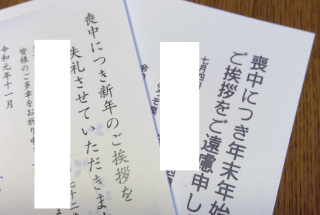 喪中につき年末年始
ご挨拶をご遠慮申し
七月四
喪中につき新年のご挨拶を
失礼させていただきま
七十二
皆様のご多幸をお祈り申
令和元年十一月